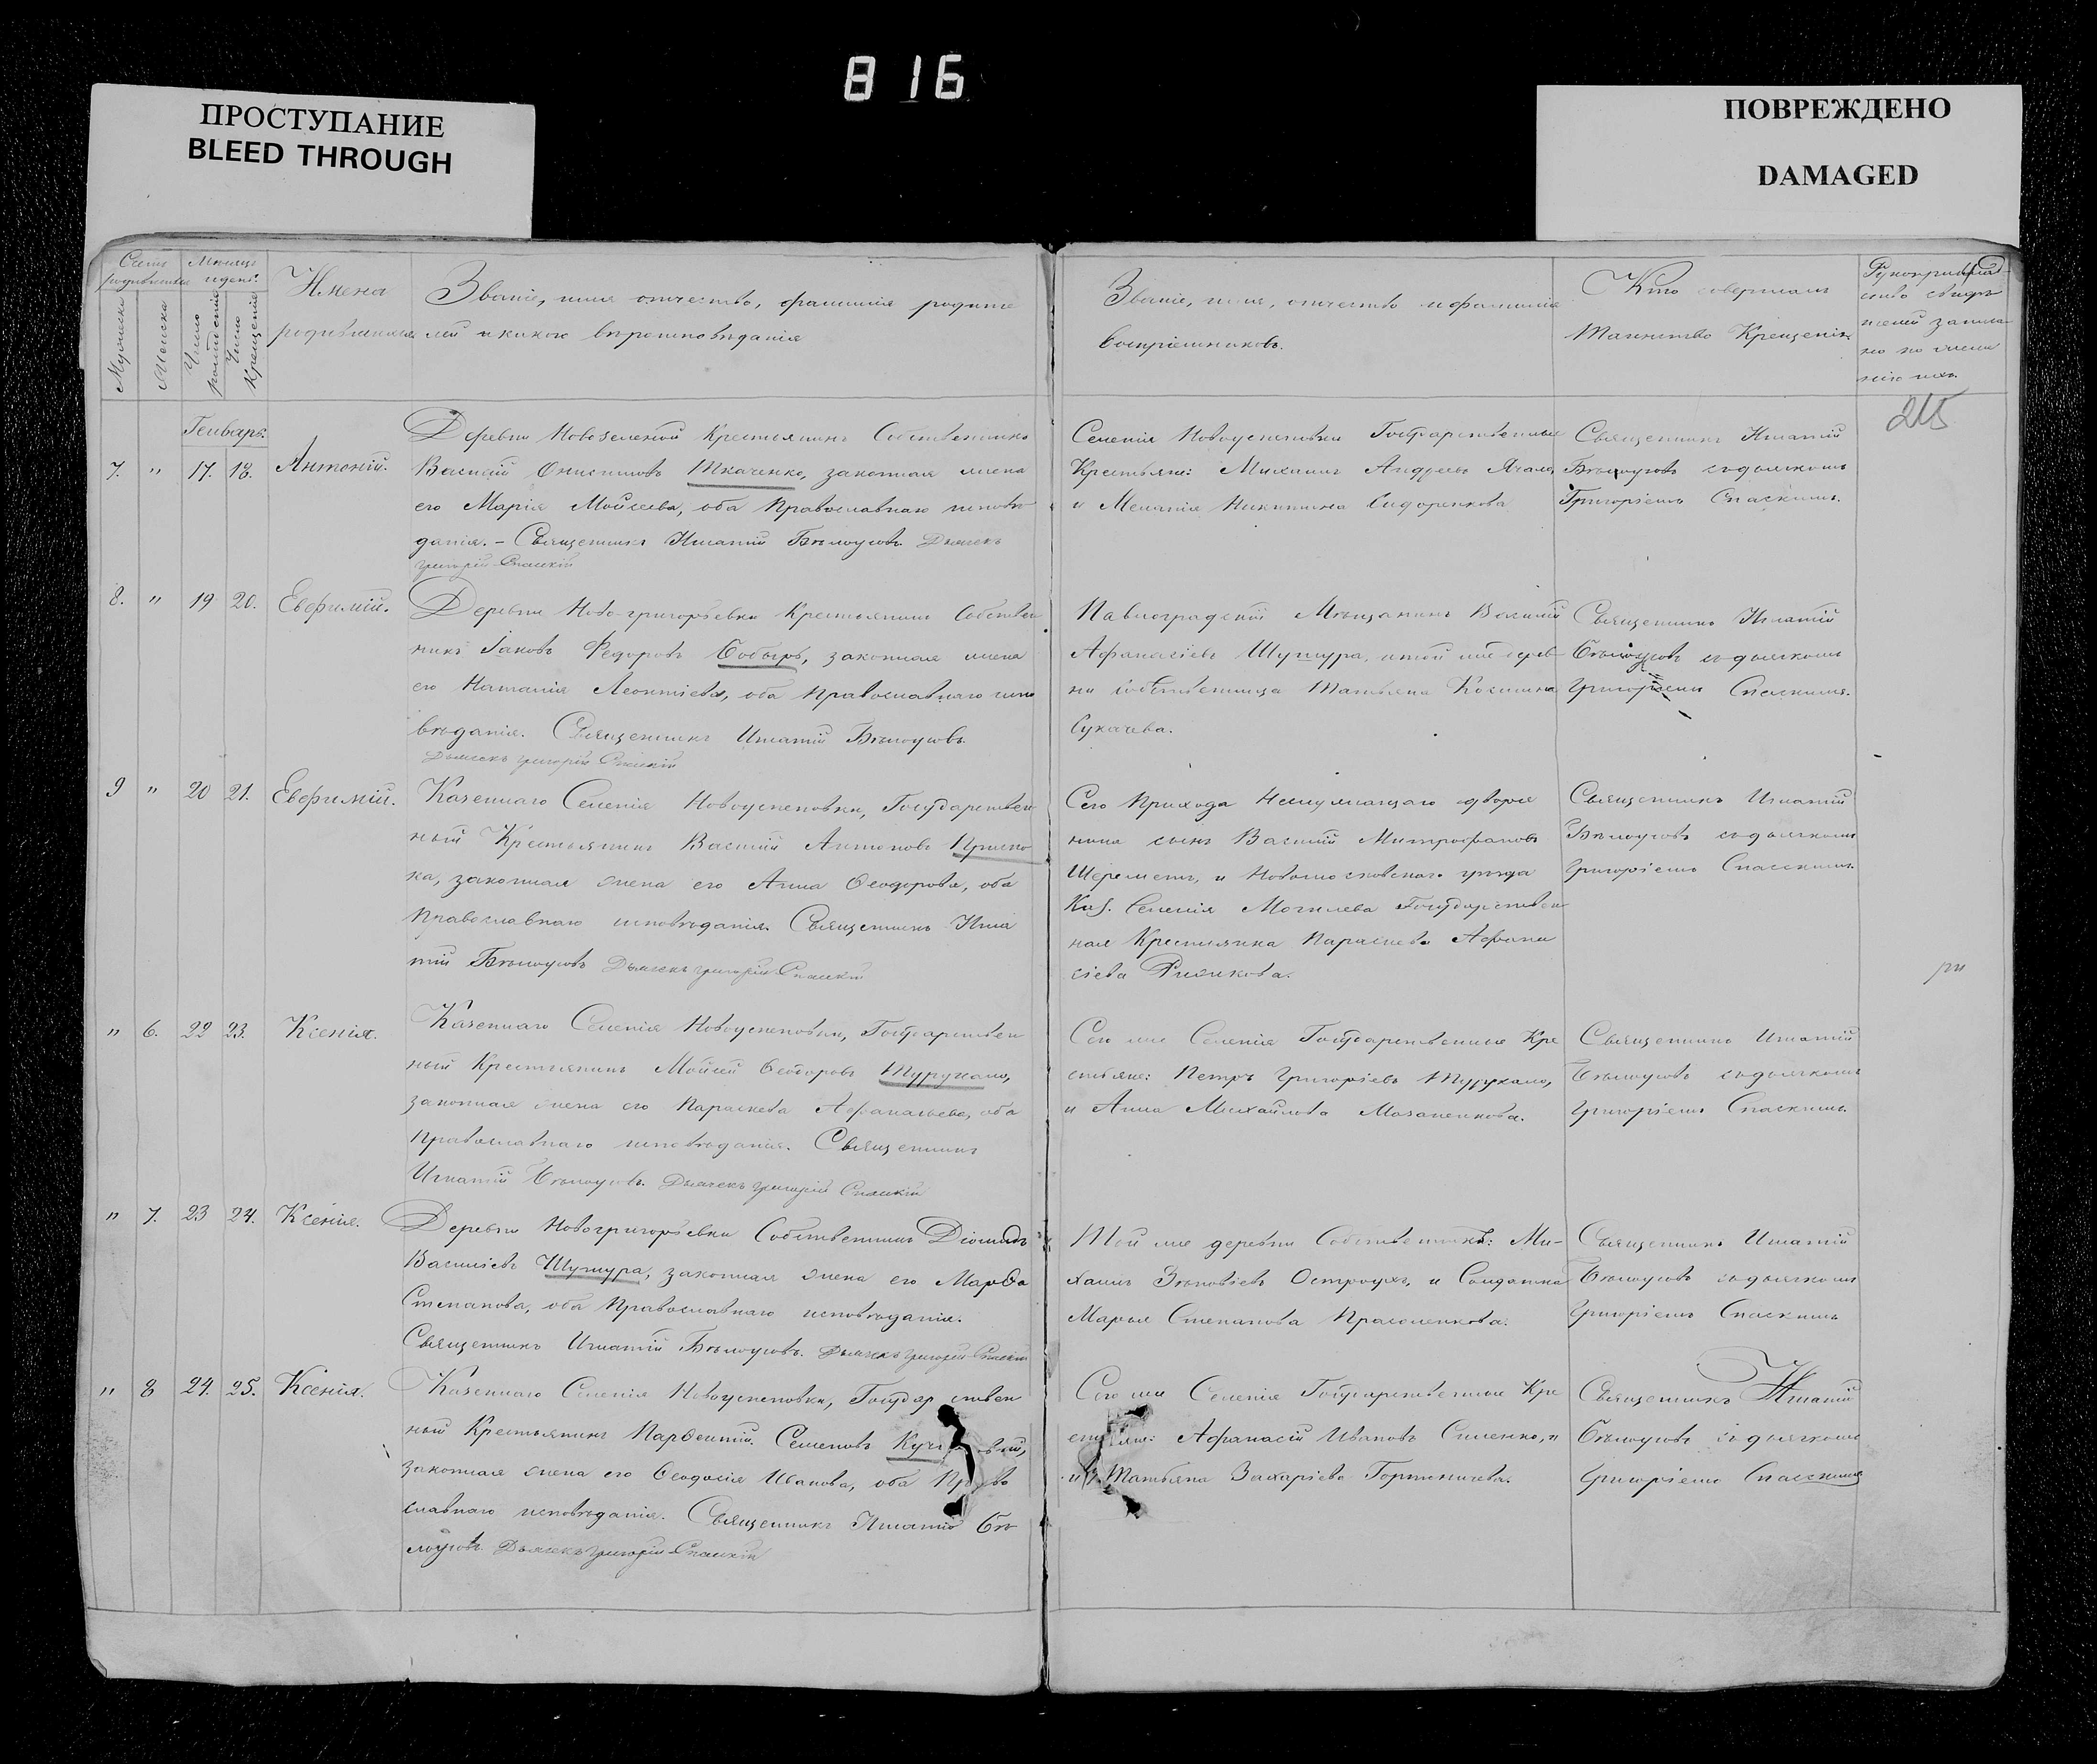 816
ПРОСТУПАНИЕ
BLEED THROUGH
ПОВРЕЖДЕНО
DAMAGED
Счетъ родившихся
Мужеска
Женска
Мѣсяцъ и день.
Число рожденія
Число Крещенія
Имена
родившихся
Званіе, имя отчество, фамилія родите
лей и какого вѣроисповѣданія
Званіе, имя, отчество и фамилія
воспріемниковъ.
Кто совершалъ
Таинство Крещенія
Рукоприклад-
ство свидѣ
телей записа
но по жела
нію ихъ.
215
Генварь.
7. " 17. 18. Антоній.
Деревни Новозеленой Крестьянинъ Собственникъ
Василій Онисимовъ Ткаченко, законная жена
его Марія Мойсеева, оба Православнаго исповѣ
данія. - Священникъ Игнатій Бѣлоусовъ. Дьячекъ
Григорій Спасскій
Селенія Новоуспеновки Государственные
Крестьяне: Михаилъ Андреевъ
и Меланія Никитина Сидоренкова
Священникъ Игнатій
Бѣлоусовъ съ дьячкомъ
Григоріемъ Спаскимъ.
8. " 19 20. Евфимій.
Деревни Ново-григорьевки Крестьянинъ Собствен
никъ Іаковъ Федоровъ Собыръ, законная жена
его Наталія Леонтіева, оба Православнаго испо
вѣданія. Священникъ Игнатій Бѣлоусовъ.
Дьячекъ Григорій Спаскій
Павлоградскій Мѣщанинъ Василій
Афанасіевъ Шутура, и той же дерев
ни собственница Татьяна Косьмина
Сукачева.
Священникъ Игнатій
Бѣлоусовъ съ дьячкомъ
Григоріемъ Спаскимъ.
9 " 20 21. Евфимій.
Казеннаго Селенія Новоуспеновки, Государствен
ный Крестьянинъ Василій Антоновъ
ка, законная жена его Анна Феодорова, оба
Православнаго исповѣданія. Священникъ Игна
тій Бѣлоусовъ Дьячекъ Григорій Спаскій
Сего Прихода Неслужащаго дворя
нина сынъ Василій Митрофановъ
Шереметъ, и Новомосковскаго уѣзда
Каз. Селенія Могилева Государствен
ная Крестьянка Параскева Афана
сіева
Священникъ Игнатій
Бѣлоусовъ съ дьячкомъ
Григоріемъ Спасскимъ.
" 6. 22 23. Ксенія.
Казеннаго Селенія Новоуспеновки, Государствен
ный Крестьянинъ Мойсей Феодоровъ Турукало,
законная жена его Параскева Афанасьева, оба
Православнаго исповѣданія. Священникъ
Игнатій Бѣлоусовъ. Дьячекъ Григорій Спаскій
Сего же Селенія Государственные Кре
стьяне: Петръ Григоріевъ Турукало,
и Анна Михайлова
Священникъ Игнатій
Бѣлоусовъ съ дьячкомъ
Григоріемъ Спаскимъ.
" 7. 23 24. Ксенія.
Деревни Новогригорьевки Собственникъ Діомидъ
Василіевъ Шутура, законная жена его Марфа
Степанова, оба Православнаго исповѣданія.
Священникъ Игнатій Бѣлоусовъ. Дьячекъ Григорій Спаскій
Той же деревни Собственникъ: Ми-
хаилъ Зѣновіевъ Остроухъ, и Солдатка
Марья Степанова
Священникъ Игнатій
Бѣлоусовъ съ дьячкомъ
Григоріемъ Спаскимъ
" 8 24. 25. Ксенія.
Казеннаго Селенія Новоуспеновки, Государствен
ный Крестьянинъ Парфентій Семеновъ
законная жена его Феодосія Иванова, оба Право
славнаго исповѣданія. Священникъ Игнатій Бѣ
лоусовъ. Дьячекъ Григорій Спаскій
Сего же Селенія Государственные Кре
стьяне: Афанасій Ивановъ Силенко, и
Татьяна Захаріева
Священникъ Игнатій
Бѣлоусовъ съ дьячкомъ
Григоріемъ Спасскимъ